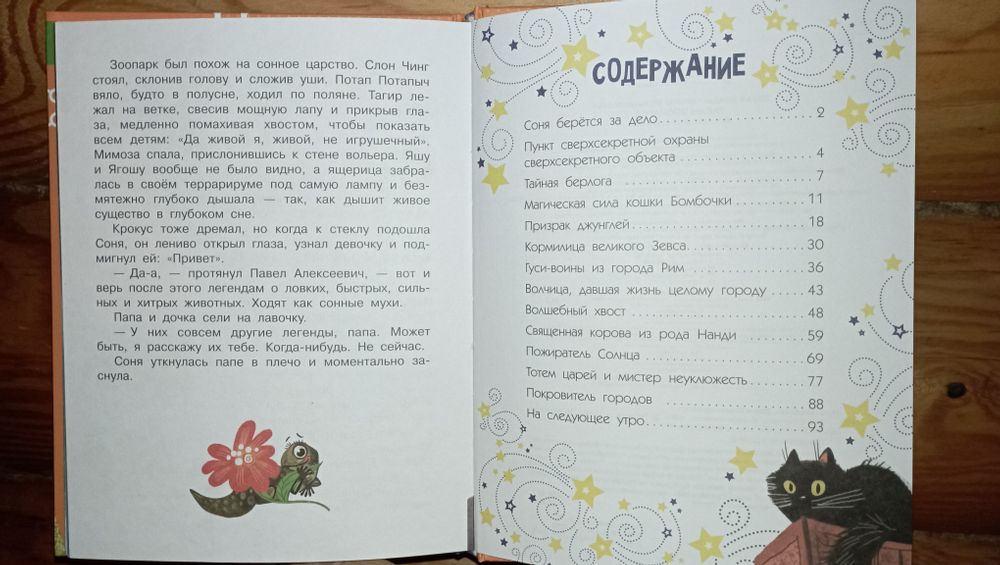 Зоопарк был похож на сонное царство. Слон Чинг
стоял, склонив голову и сложив уши. Потап Потапыч
вяло, будто в полусне, ходил по поляне. Тагир ле-
жал на ветке, свесив мощную лапу и прикрыв гла-
за, медленно помахивая хвостом, чтобы показать
всем детям: «Да живой я, живой, не игрушечный».
Мимоза спала, прислонившись к стене вольера. Яшу
и Ягошу вообще не было видно, а ящерица забра-
лась в своём террарируме под самую лампу и без-
мятежно глубоко дышала — так, как дышит живое
существо в глубоком сне.
Крокус тоже дремал, но когда к стеклу подошла
Соня, он лениво открыл глаза, узнал девочку и под-
мигнул ей: «Привет».
— Да-а, — протянул Павел Алексеевич, — вот и
верь после этого легендам о ловких, быстрых, силь-
ных и хитрых животных. Ходят как сонные мухи.
Папа и дочка сели на лавочку.
— У них совсем другие легенды, папа. Может
быть, я расскажу их тебе. Когда-нибудь. Не сейчас.
Соня уткнулась папе в плечо и моментально за-
снула.
СОДЕРЖАНИЕ
Соня берётся за дело.................... 2
Пункт сверхсекретной охраны
сверхсекретного объекта ................. 4
Тайная берлога ......................... 7
Магическая сила кошки Бомбочки.......... 11
Призрак джунглей........................ 18
Кормилица великого Зевса................ 30
Гуси-воины из города Рим ............... 36
Волчица, давшая жизнь целому городу ..... 43
Волшебный хвост ........................ 48
Священная корова из рода Нанди .......... 59
Пожиратель Солнца ...................... 69
Тотем царей и мистер неуклюжесть........ 77
Покровитель городов .................... 88
На следующее утро....................... 93